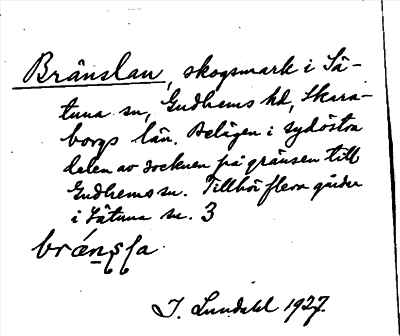 Bränslan, skogsmark i Sä-
tuna sn, Gudhems hd, Skara-
borgs län. Belägen i sydöstra
delen av socknen på gränsen till
Gudhems sn. Tillhör flera gårdar
i Sätuna sn. 3
brǽn̥s̥l̥a
J. Lundahl 1927.